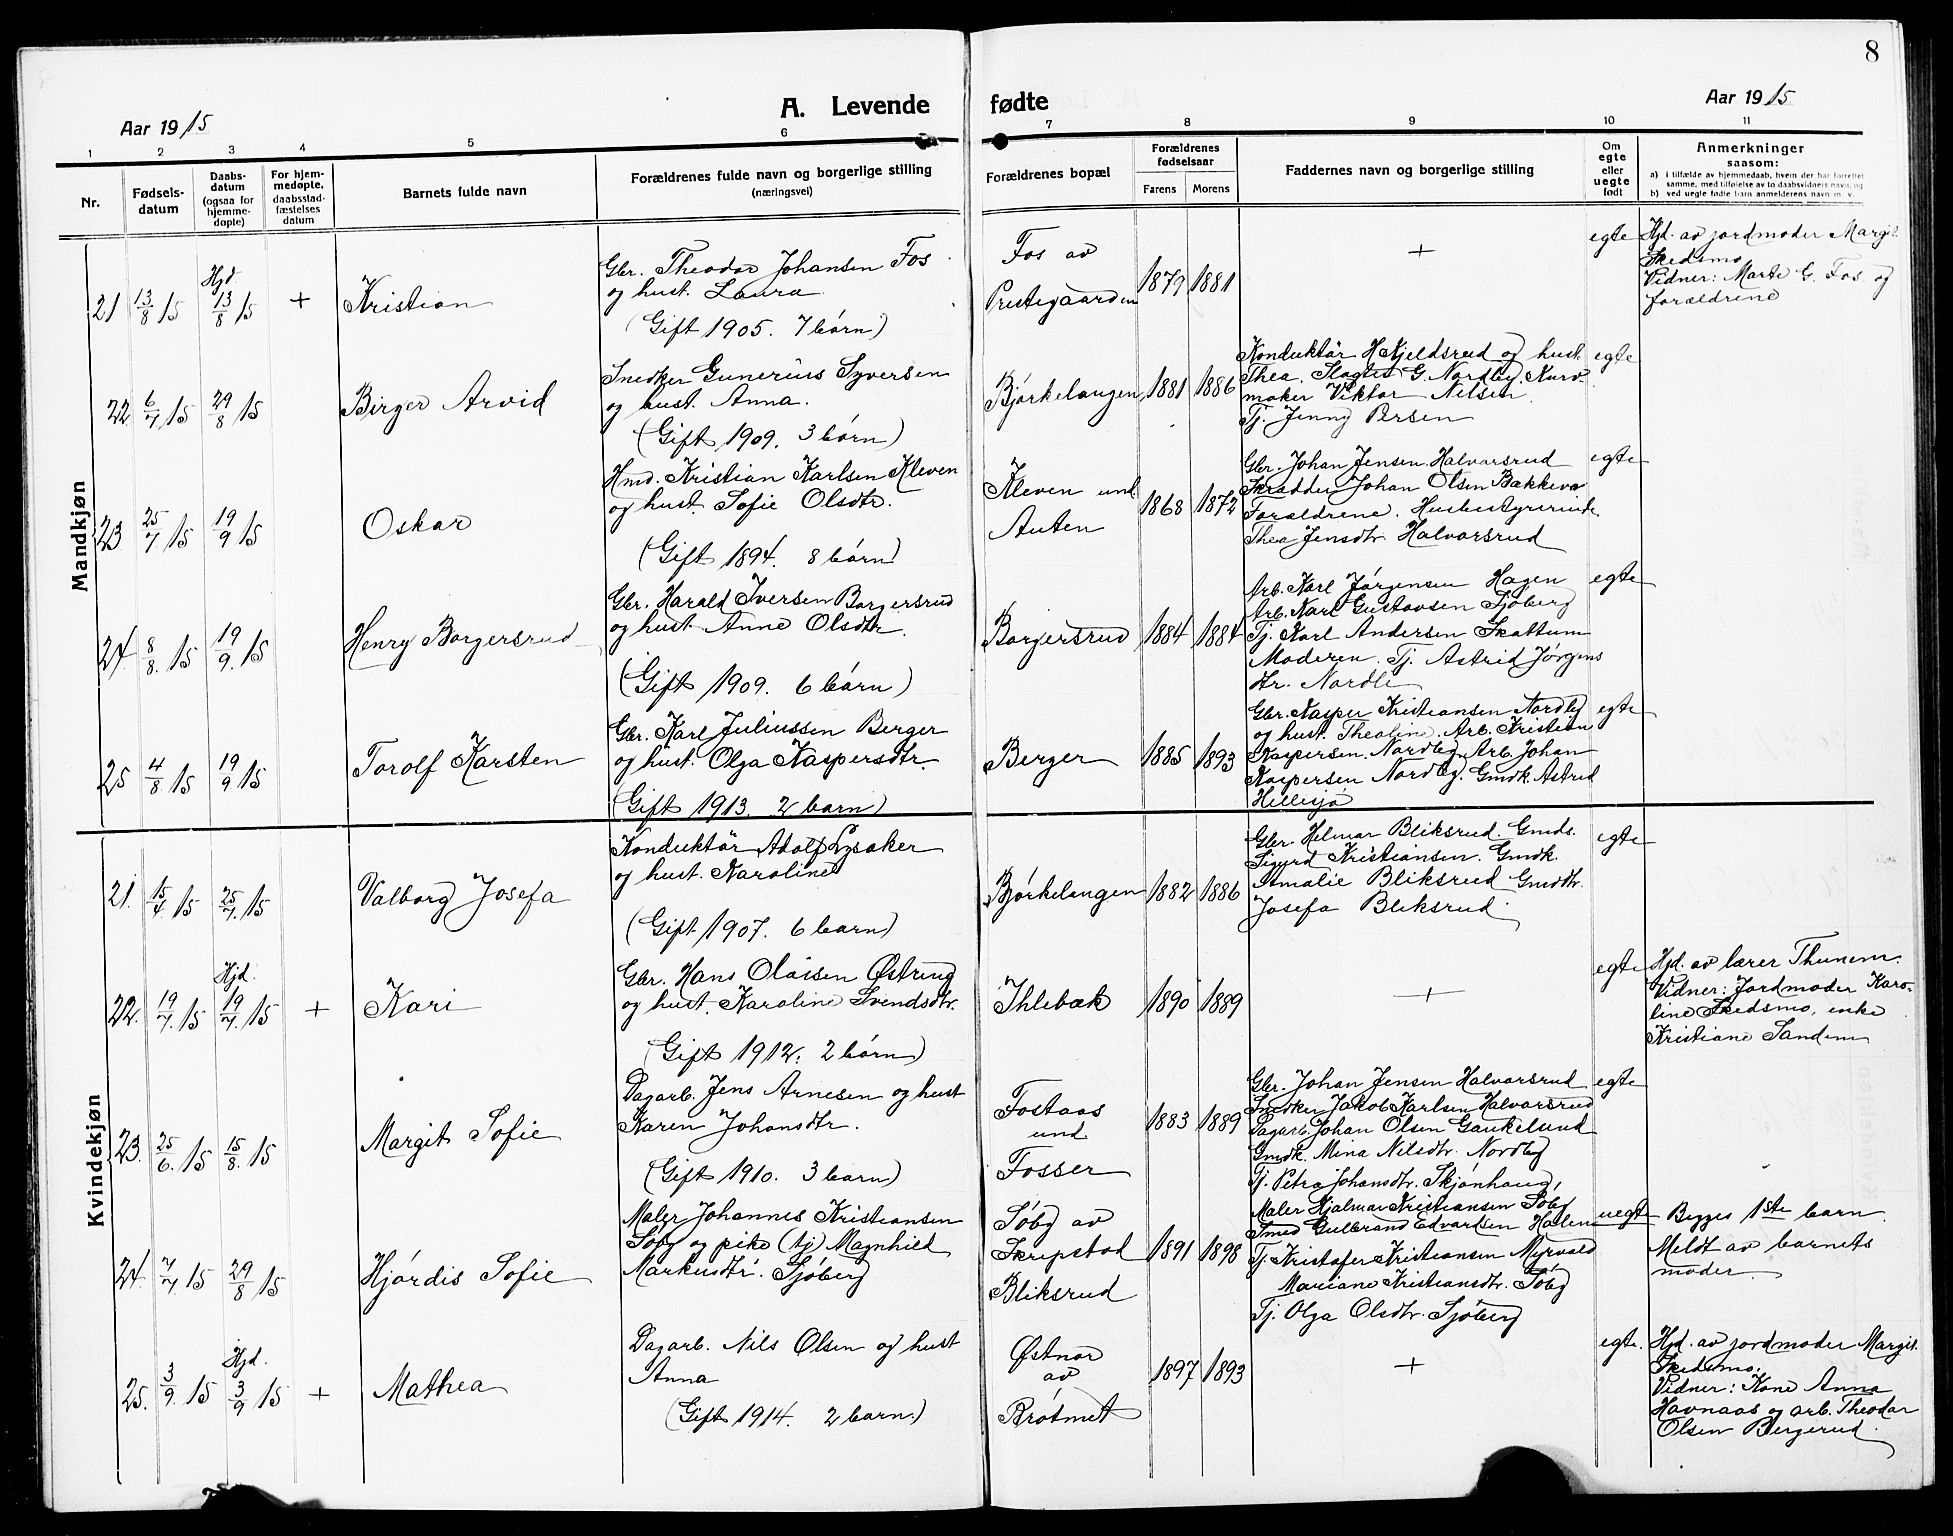 8
A. Levende fødte
Aar 1915
Aar 1915
1 2 3 4 5 6 7 8 9 10 11
Nr.
Fødsels-
datum
Daabs-
datum
(ogsaa for
hjemme-
døpte)
For hjem-
medøpte,
daabsstad-
fæstelses
datum
Barnets fulde navn
Forældrenes fulde navn og borgerlige stilling
(næringsvei)
Forældrenes bopæl
Forældrenes
fødselsaar
Farens Morens
Faddernes navn og borgerlige stilling
Om
egte
eller
uegte
født
Anmerkninger
saasom:
a) i tilfælde av hjemmedaab, hvem der har forrettet
samme, med tilføielse av to daabsvidners navn, og
b) ved uegte fødte barn anmelderens navn m. v.
Mandkjøn
21 13/8 15 Hjd. 13/8 15 + Kristian
Gbr. Theodor Johansen Fos
og hust. Laura
(Gift 1905. 7 børn)
Fos av
Prestegaarden
1879 1881
+
egte
Hjd. av jordmoder Margit
Skedsmo
Vidner: Marte G. Fos og
forældrene
22 6/7 15 29/8 15 Birger Arvid
Snedker Gunerius Syversen
og hust. Anna.
(Gift 1909. 3 børn)
Bjørkelangen
1881 1886
Konduktør H. Kjeldsrud og hust.
Thea. Slagter G. Nordby. Kurv-
maker Viktor Nilsen
Tj. Jenny Persen
egte
23 25/7 15 19/9 15 Oskar
Hmd. Kristian Karlsen Kleven
og hust. Sofie Olsdtr.
(Gift 1894. 8 børn)
Kleven und.
Auten
1868 1872
Gbr. Johan Jensen Halvorsrud
Skrædder Johan Olsen Bakkevar
Forældrene. Husbestyrerinde
Thea Jensdtr. Halvorsrud
egte
24 8/8 15 19/9 15 Henry Borgersrud
Gbr. Harald Iversen Borgersrud
og hust. Anne Olsdtr.
(Gift 1909. 6 børn)
Borgersrud
1884 1884
Arb. Karl Jørgensen Hagen
Arb. Karl Gustavsen Sjøberg
Tj. Karl Andersen Skattum
Moderen. Tj. Astrid Jørgens
dtr. Nordli
egte
25 4/8 15 19/9 15 Torolf Karsten
Gbr. Karl Juliussen Berger
og hust. Olga Kaspersdtr.
(Gift 1913. 2 barn)
Berger
1885 1893
Gbr. Kasper Kristiansen Nordby
og hust. Theoline. Arb. Kristian
Kaspersen Nordby. Arb. Johan
Kaspersen Nordby. Gmdk. Astrid
Hellesjø
egte
Kvindekjøn
21. 15/4 15 25/7 15 Valborg Josefa
Konduktør Adolf Lysaker
og hust. Karoline
(Gift 1907. 6 barn)
Bjørkelangen
1882 1886
Gbr. Helmar Bliksrud. Gmds.
Sigurd Kristiansen. Gmdk.
Amalie Bliksrud Gmddtr.
Josefa Bliksrud
egte
22. 19/7 15 Hjd. 19/7 15 + Kari
Gbr. Hans Olaisen Østring
og hust. Karoline Svendsdtr.
(Gift 1912. 2 børn)
Ihlebæk
1890 1889
+
egte
Hjd. av lærer Thunem.
Vidner: Jordmoder Karo-
line Skedsmo, enke
Kristiane Sandem
23. 25/6 15 15/8 15 Margit Sofie
Dagarb. Jens Arnesen og hust
Karen Johansdtr.
(Gift 1910. 3 barn)
Fostaas
und
Fosser
1883 1889
Gbr. Johan Jensen Halvorsrud
Snedker Jakob Karlsen Halvorsrud
Dagarb. Johan Olsen Gaukelund
Gmdk. Mina Nilsdtr. Nordby
Tj. Petra Johansdtr. Skjønhaug.
egte
24. 7/7 15 29/8 15 Hjørdis Sofie
Maler Johannes Kristiansen
Søby og pike (tj) Magnhild
Markusdtr. Sjøberg
Søby av
Skrepstad
Bliksrud
1891 1898
Maler Hjalmar Kristiansen Søby
Smed Gulbrand Edvardsen Holen
Tj. Kristofer Kristiansen Myrvold
Mariane Kristiansdtr. Søby
Tj. Olga Olsdtr. Sjøberg
uegte
Begges 1ste barn.
Meldt av barnets
moder.
25. 3/9 15 Hjd. 3/9 15 + Mathea
Dagarb. Nils Olsen og hust
Anna
(Gift 1914. 2 barn.)
Østnor
av
Brøtmet
1897 1893
+
egte.
Hjd. av jordmoder Margit
Skedsmo.
Vidner: Kone Anna
Havnaas og arb. Theodor
Olsen Bergerud.